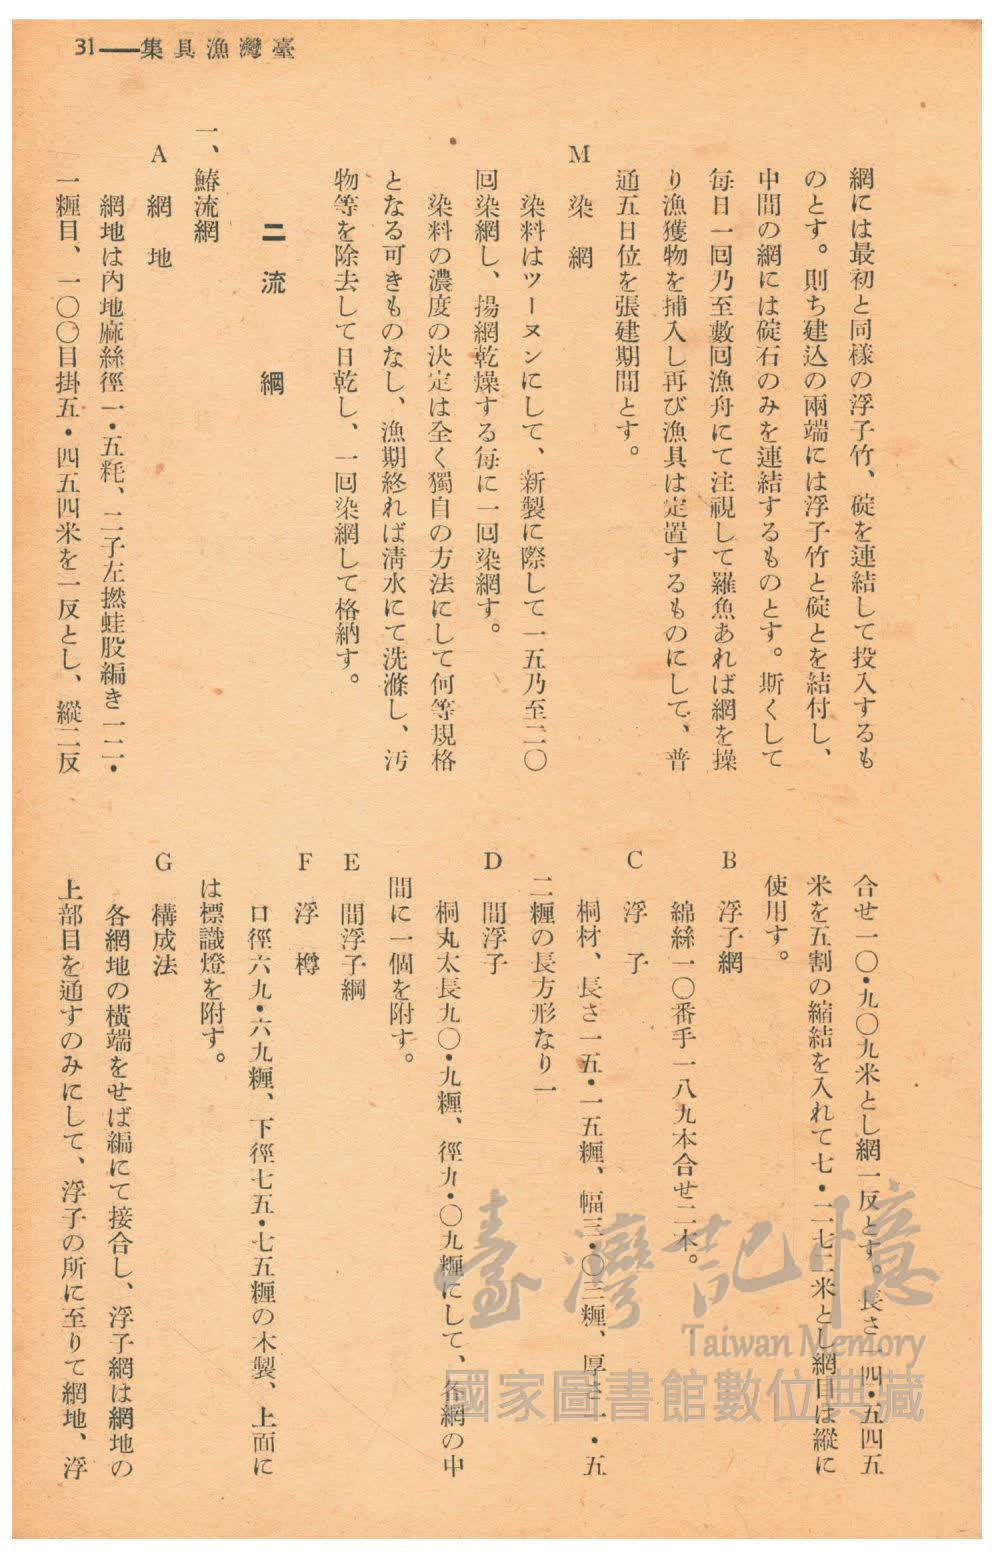 臺灣漁具集━━31
網には最初と同樣の浮子竹、碇を連結して投入するも
のとす。則ち建込の兩端には浮子竹と碇とを結付し、
中間の網には碇石のみを連結するものとす。斯くして
每日一回乃至數回漁舟にて注視して羅魚あれば網を操
り漁獲物を捕入し再び漁具は定置するものにして、普
通五日位を張建期間とす。
M 染網
染料はツーヌンにして、新製に際して一五乃至二〇
回染網し、揚網乾燥する每に一回染網す。
染料の濃度の決定は全く獨自の方法にして何等規格
となる可きものなし、漁期終れば淸水にて洗滌し、汚
物等を除去して日乾し、一回染網して格納す。
二 流網
一、鰆流網
A 網地
網地は內地麻絲徑一・五粍、二子左撚蛙股編き一二・
一糎目、一〇〇目掛五・四五四米を一反とし、縱二反
合せ一〇・九〇九米とし網一反とす。長さ一四・五四五
米を五割の縮結を入れて七・二七二米とし網目は縱に
使用す。
B 浮子網
綿絲一〇番手一八九本合せ二本。
C 浮子
桐材、長さ一五・一五糎、幅三・〇三糎、厚さ一・五
二糎の長方形なり一
D 間浮子
桐丸太長九〇・九糎、徑九・〇九糎にして、各網の中
間に一個を附す。
E 間浮子綱
F 浮樽
口徑六九・六九糎、下徑七五・七五糎の木製、上面に
は標識燈を附す。
G 構成法
各網地の橫端をせば編にて接合し、浮子網は網地の
上部目を通すのみにして、浮子の所に至りて網地、浮
臺灣記憶
Taiwan Memory
國家圖書館數位典藏